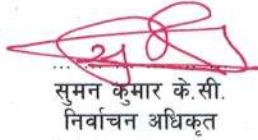 सुमन कुमार के.सी.
निर्वाचन अधिकृत